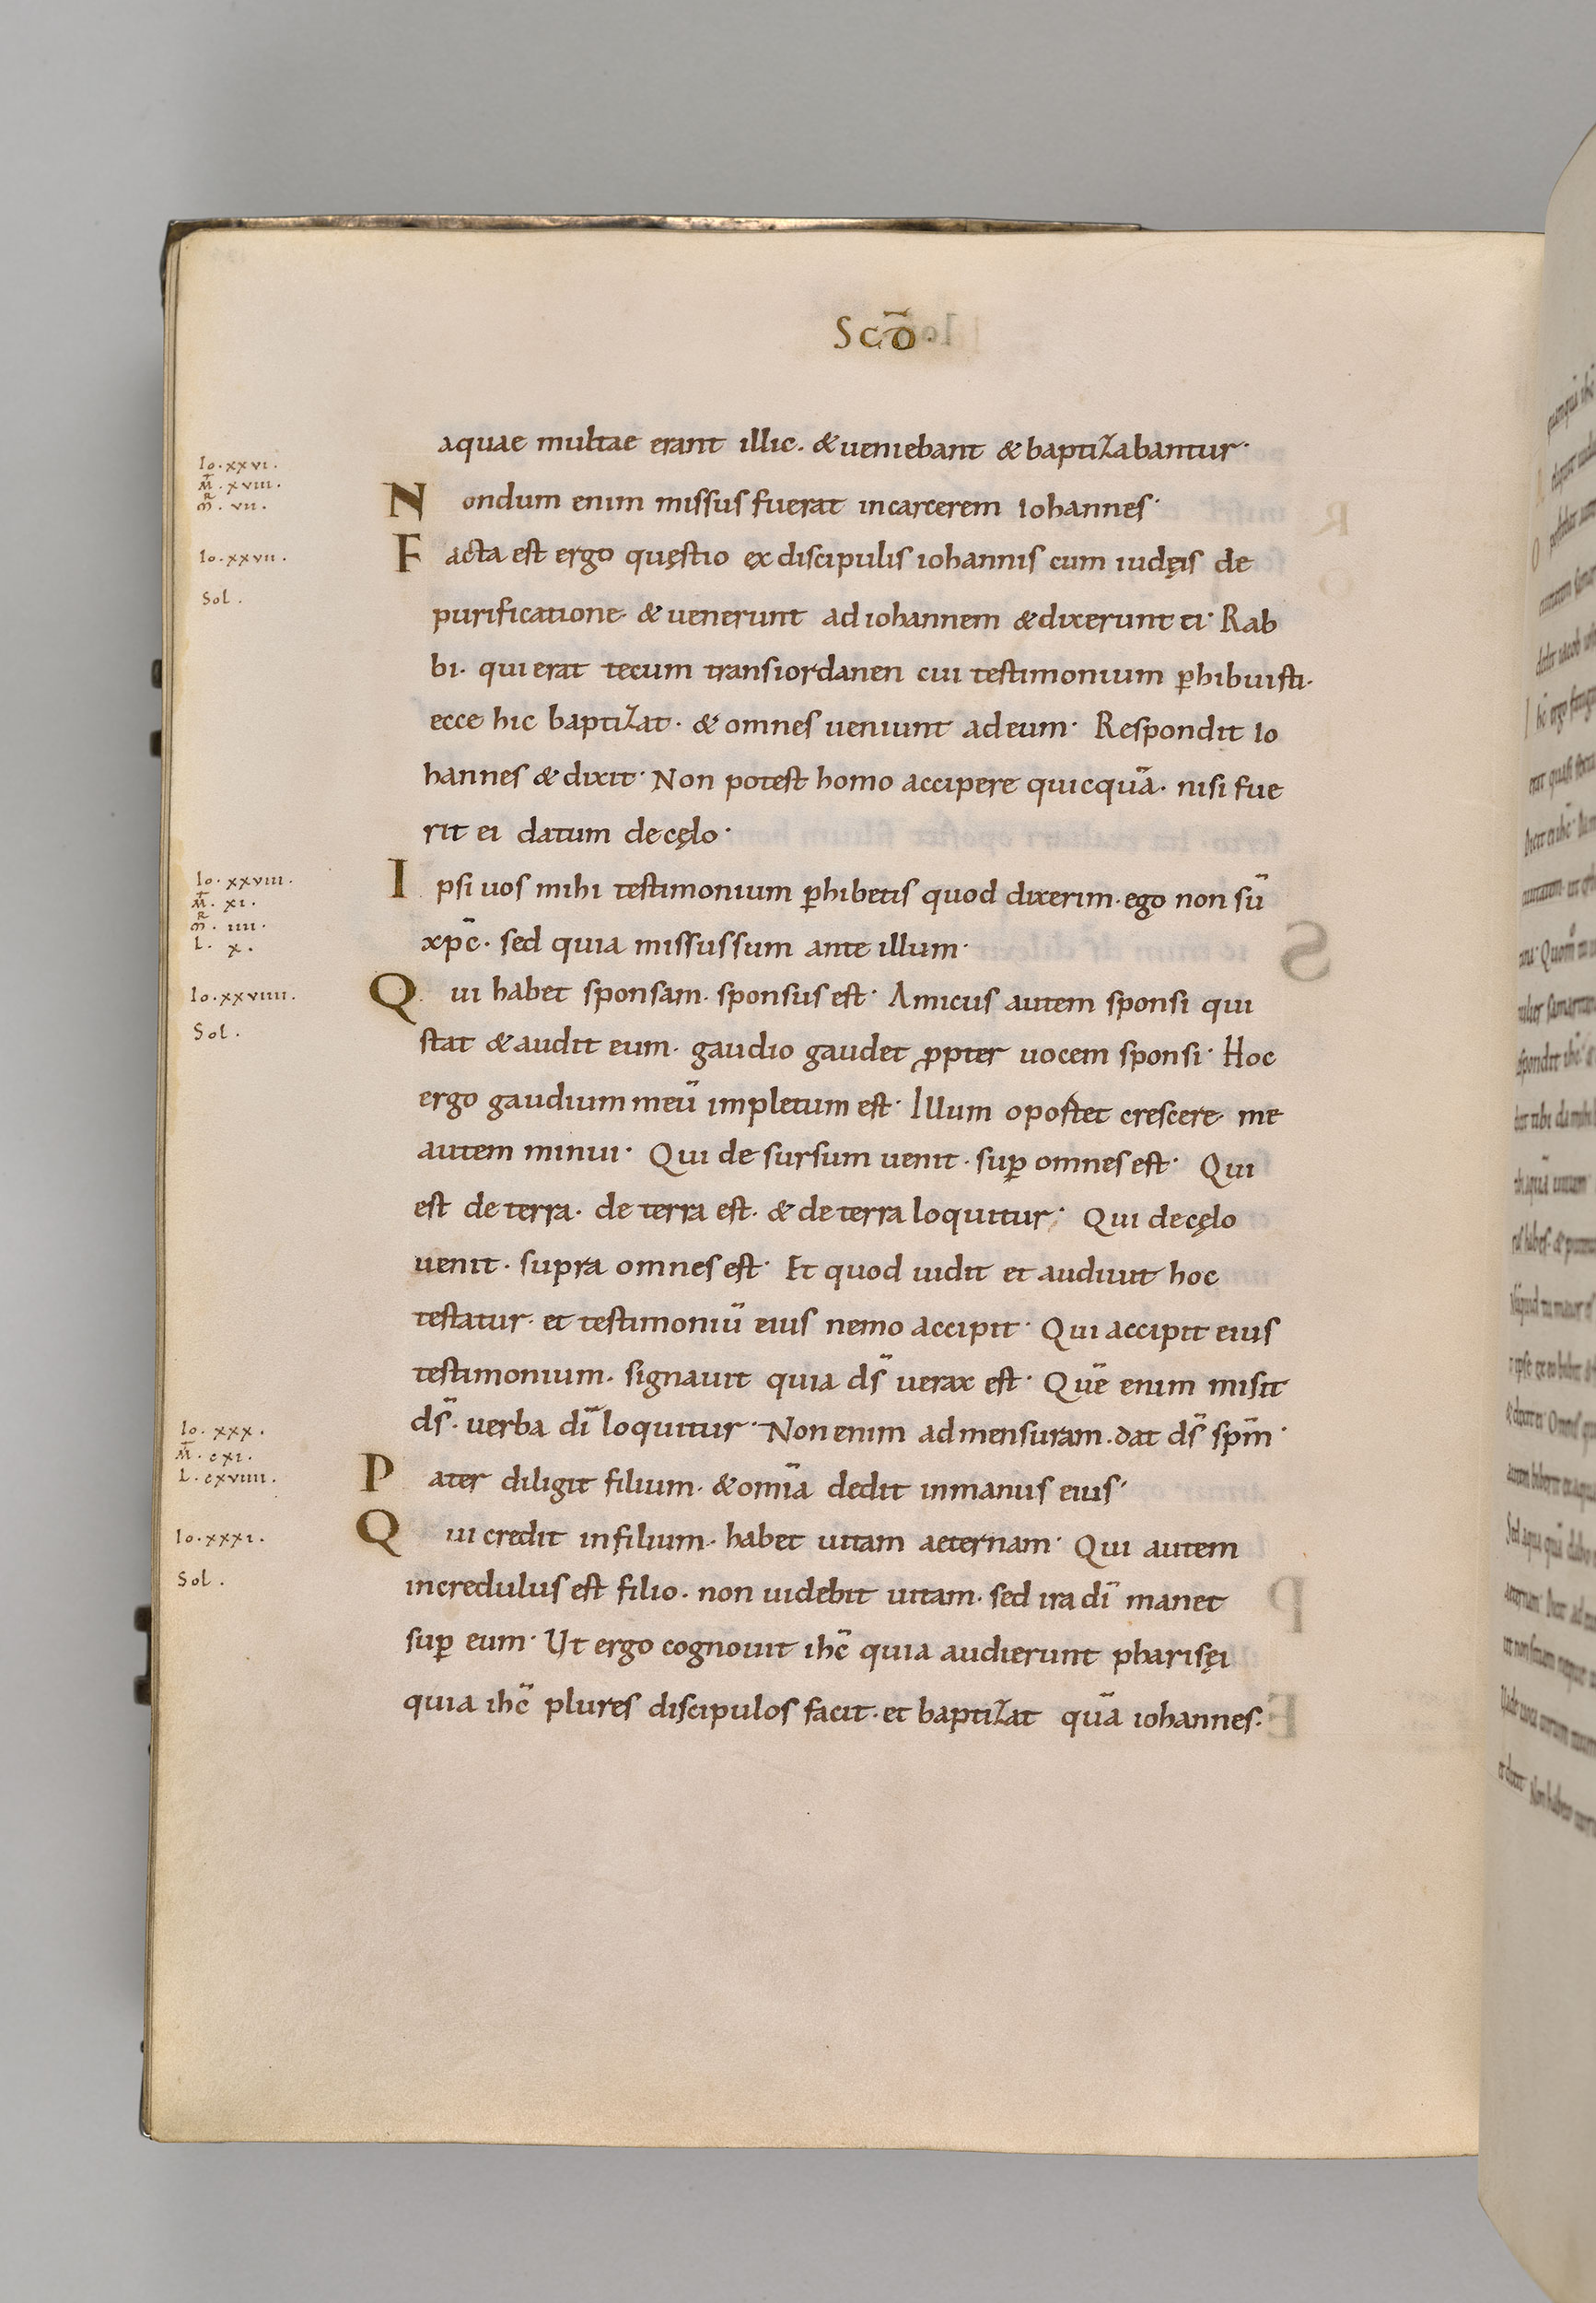 Scd̄o·
aquae multae erant illic· & ueniebant & baptizabantur·
Io·xxvi·
M̄·xviii·
m̄·vii·
Nondum enim missus fuerat incarcerem Iohannes·
Io·xxvii·
Facta est ergo quęstio ex discipulis iohannis cum iudęis de
Sol·
purificatione· & venerunt ad iohannem & dixerunt ei· Rab
bi· qui erat tecum transiordanen cui testimonium ꝑhibuisti·
ecce hic baptizat· & omnes ueniunt ad eum· Respondit Io
hannes & dixit· Non potest homo accipere quicquā· nisi fue
rit ei datum de cęlo·
Io·xxviii·
M̄·xi·
m̄·iiii·
L·x·
Ipsi uos mihi testimonium ꝑhibetis quod dixerim· ego non sū
xpc̄· sed quia missus sum ante illum·
Io·xxviiii·
Qui habet sponsam· sponsus est· Amicus autem sponsi qui
Sol·
stat & audit eum· gaudio gaudet ꝓpter uocem sponsi· Hoc
ergo gaudium meū impletum est· Illum oportet crescere· me
autem minui· Qui de sursum uenit· suꝑ omnes est· Qui
est de terra· de terra est· & de terra loquitur· Qui de cęlo
uenit· supra omnes est· Et quod uidit et audiuit hoc
testatur· et testimoniū eius nemo accipit· Qui accipit eius
testimonium· signauit quia ds̄ uerax est· Quē enim misit
ds̄· uerba dī loquitur· Non enim ad mensuram· dat ds̄ spm̄·
Io·xxx·
M̄·cxi·
L·cxviiii·
Pater diligit filium· & om̄ia dedit in manus eius·
Io·xxxi·
Qui credit in filium· habet uitam aeternam· Qui autem
Sol·
incredulus est filio· non uidebit uitam· sed ira dī manet
suꝑ eum· Ut ergo cognouit ihc̄ quia audierunt pharisęi
quia ihc̄ plures discipulos facit· et baptizat quā iohannes·